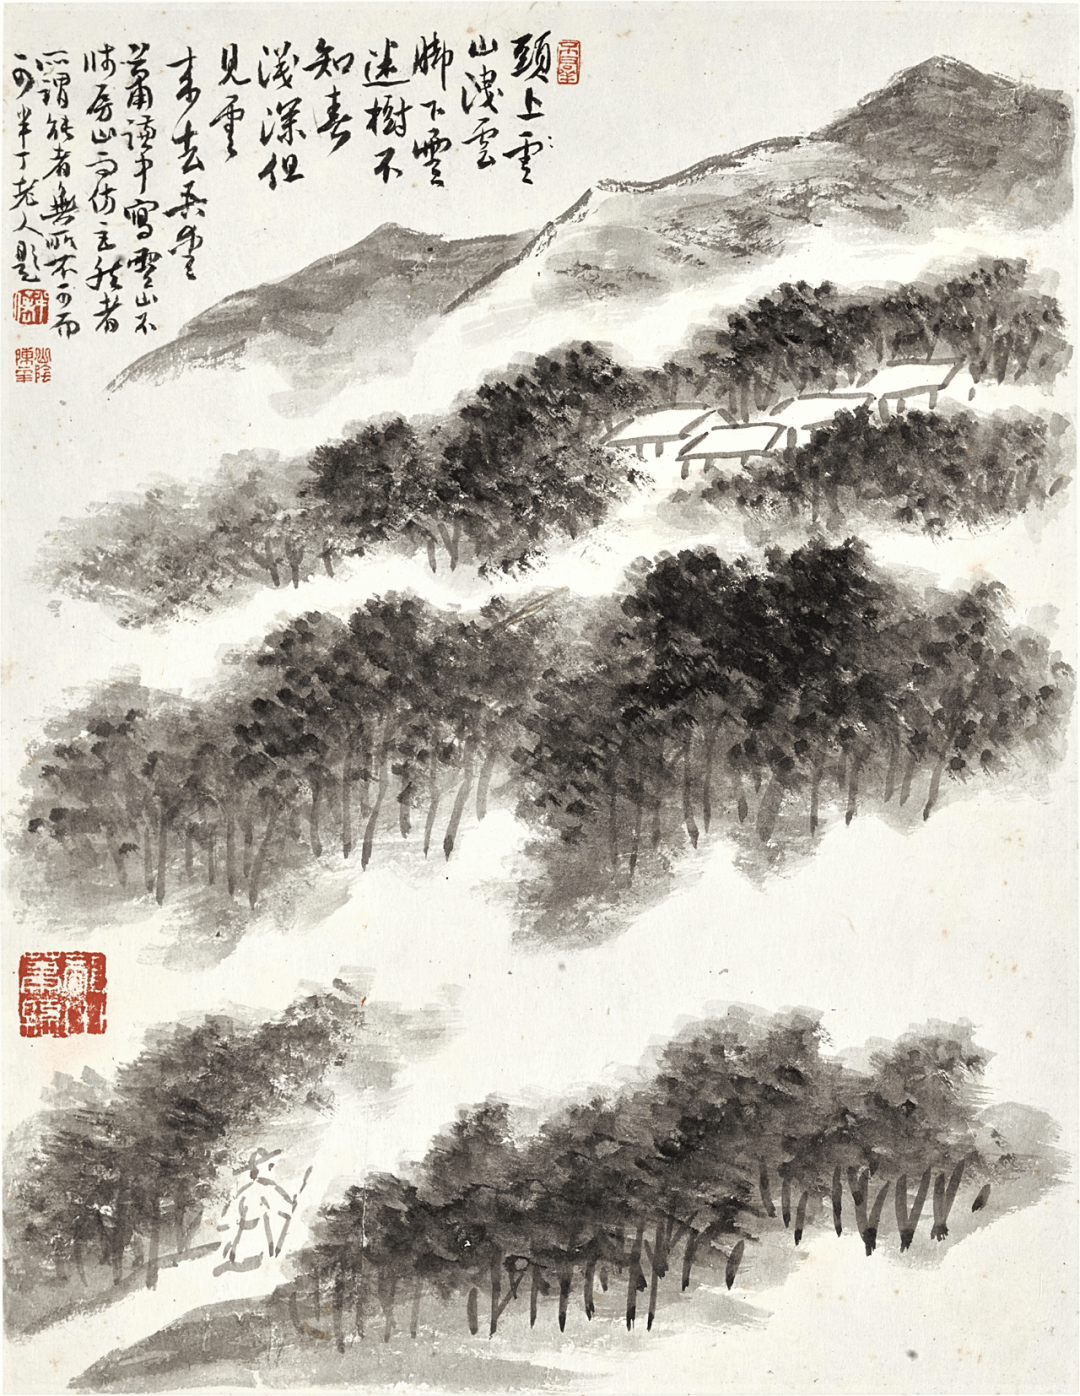 頭上雲
山洩雲
腳下雲
迷樹不
知春
淺深但
見雲
來去
甫 中寫雲山不
師房山而仿 者
所謂能者無所不可而
可半丁老人題
山陰陳年